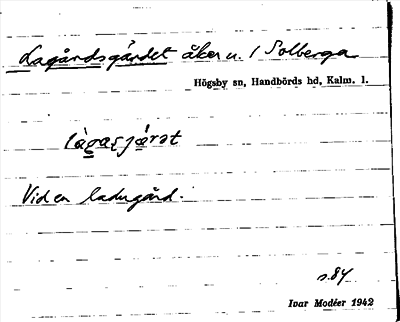 Lagårdsgärdet åker u. / Solberga
Högsby sn, Handbörds hd, Kalm. l.
Vid en ladugård.
s. 84
Ivar Modéer 1942